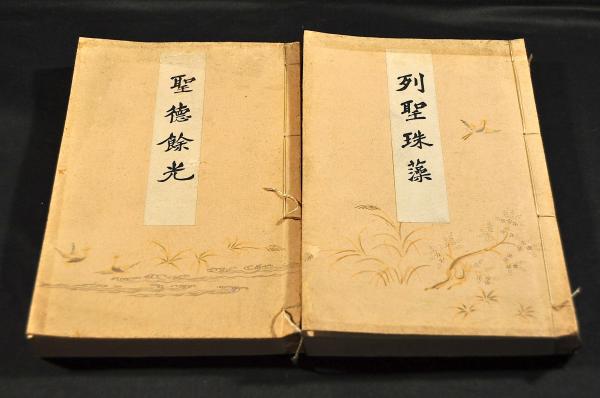 列聖珠藻
聖德餘光